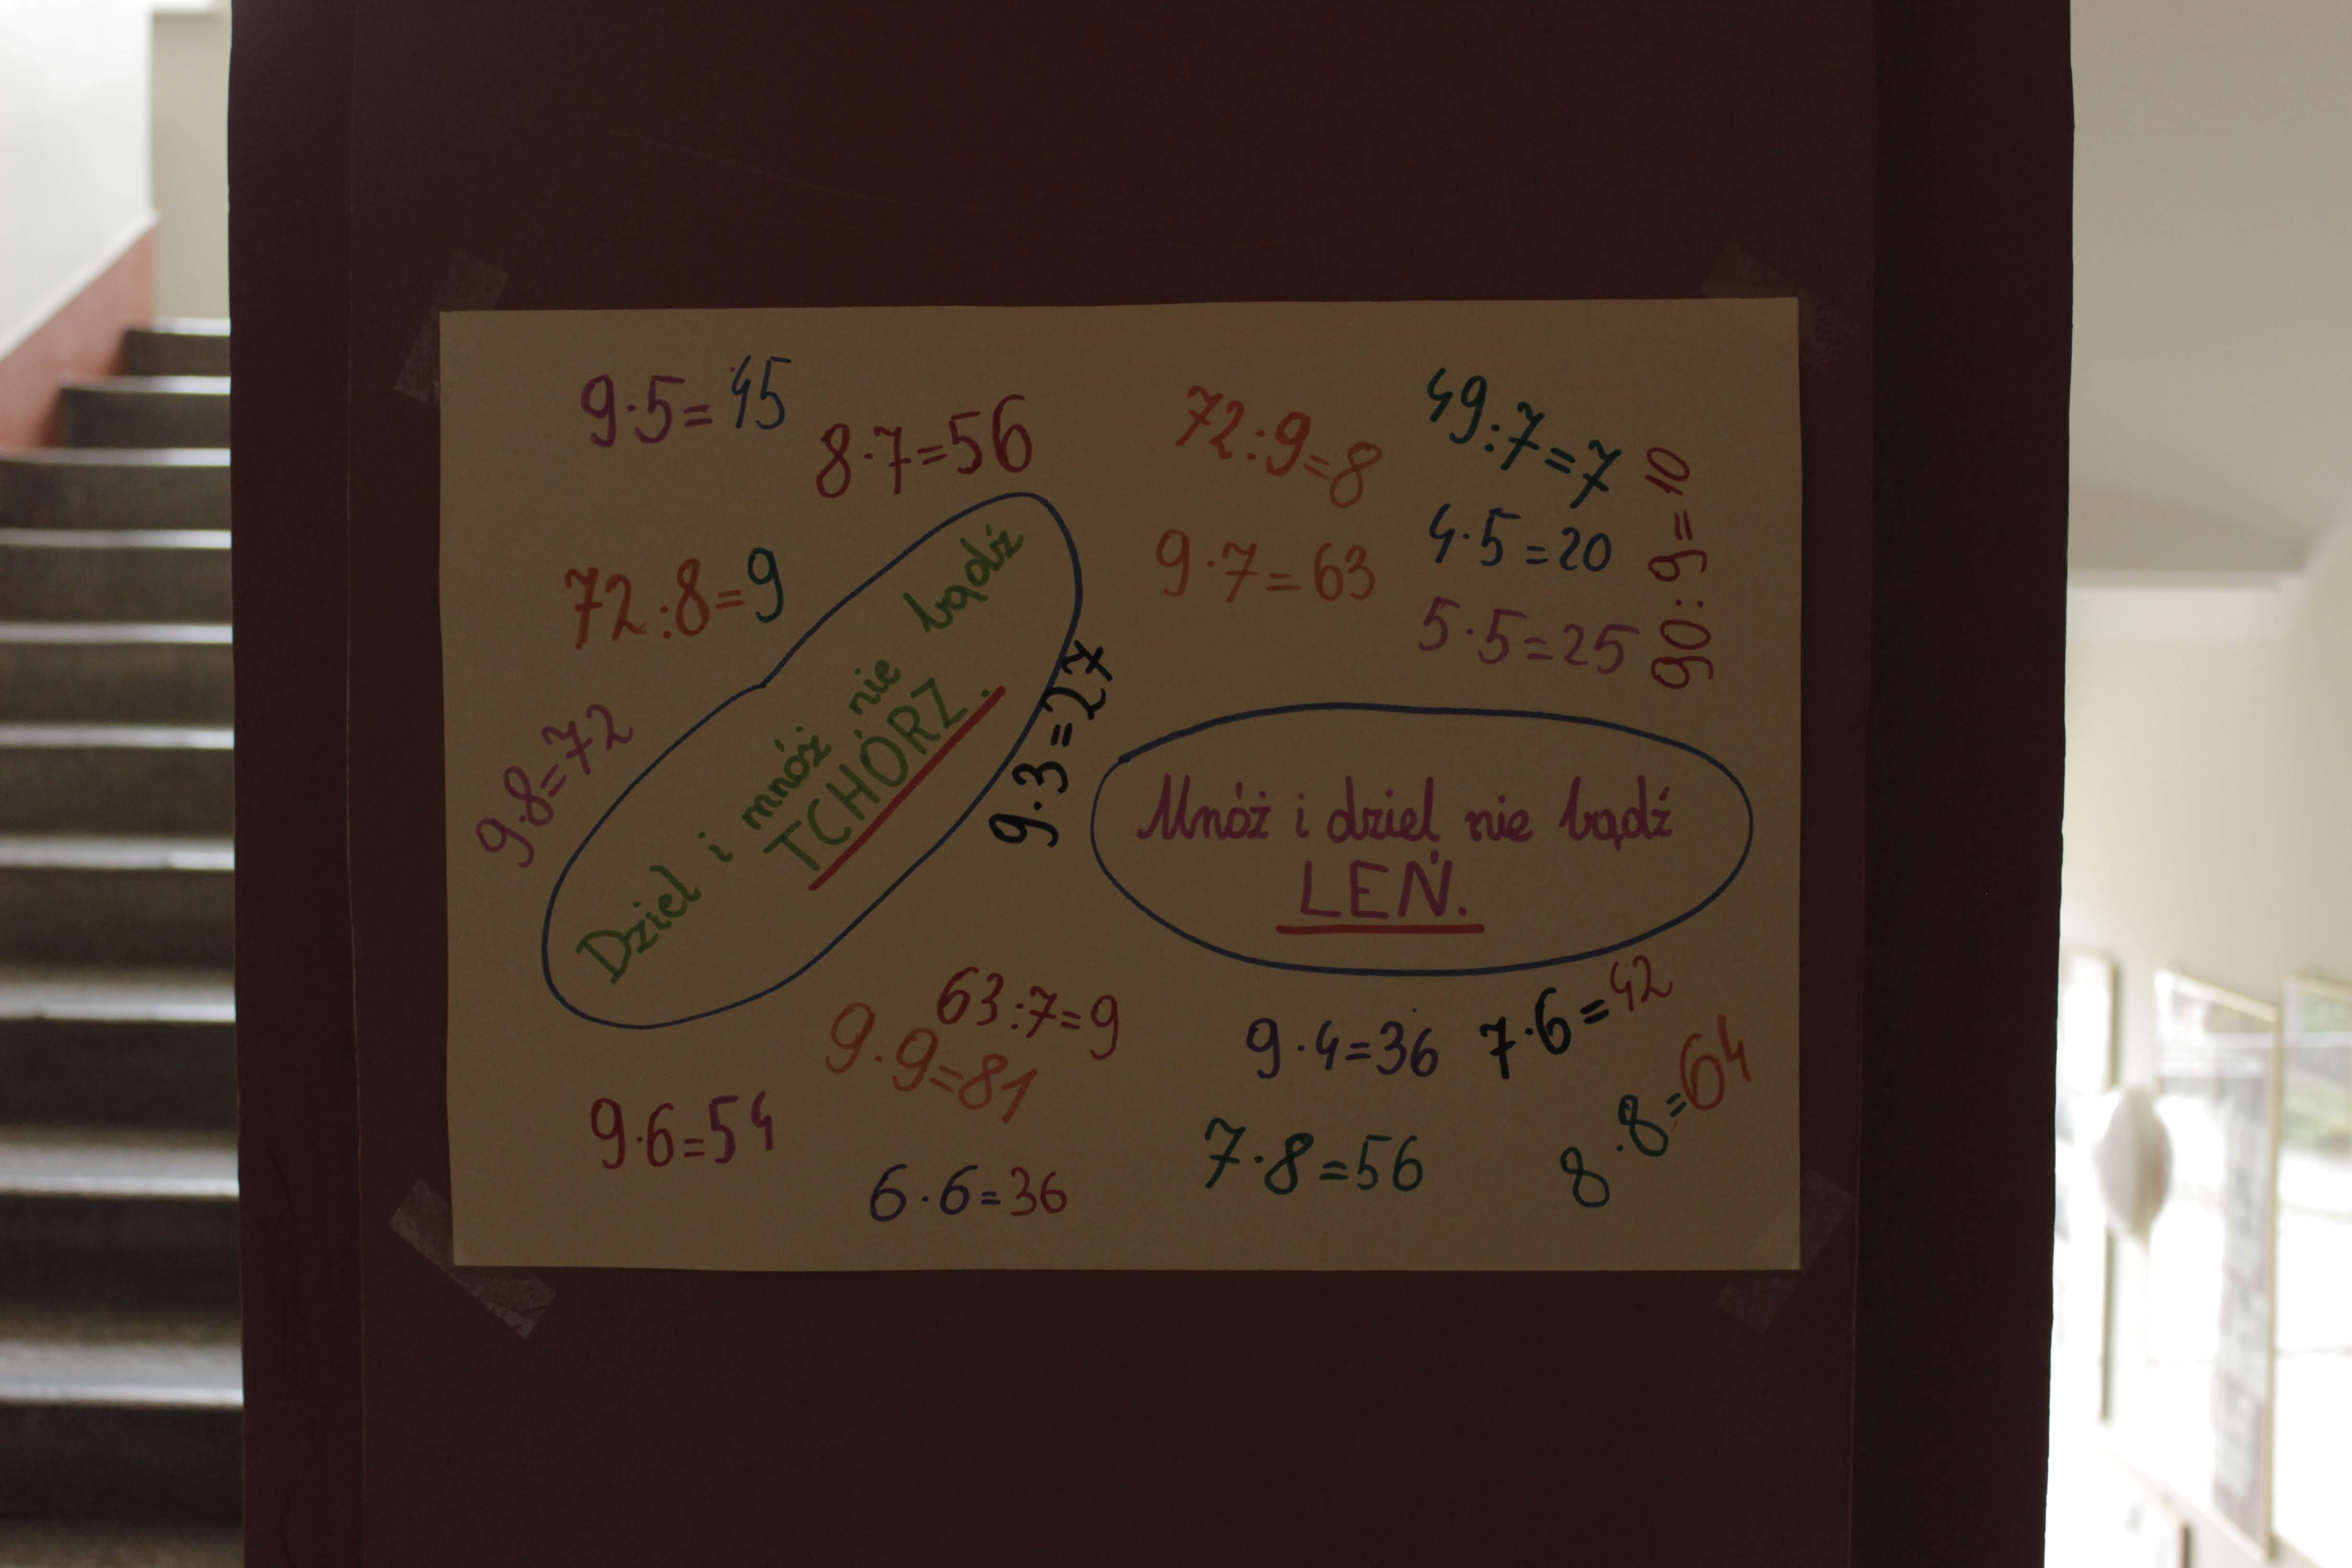 9·5=45
8·7=56
72:9=8
49:7=7
90:9=10
4·5=20
9·7=63
72:8=9
5·5=25
Dziel i mnóż nie bądź
TCHÓRZ.
9·3=27
9·8=72
Mnóż i dziel nie bądź
LEŃ.
63:7=9
9·9=81
9·4=36
7·6=42
8·8=64
9·6=54
6·6=36
7·8=56